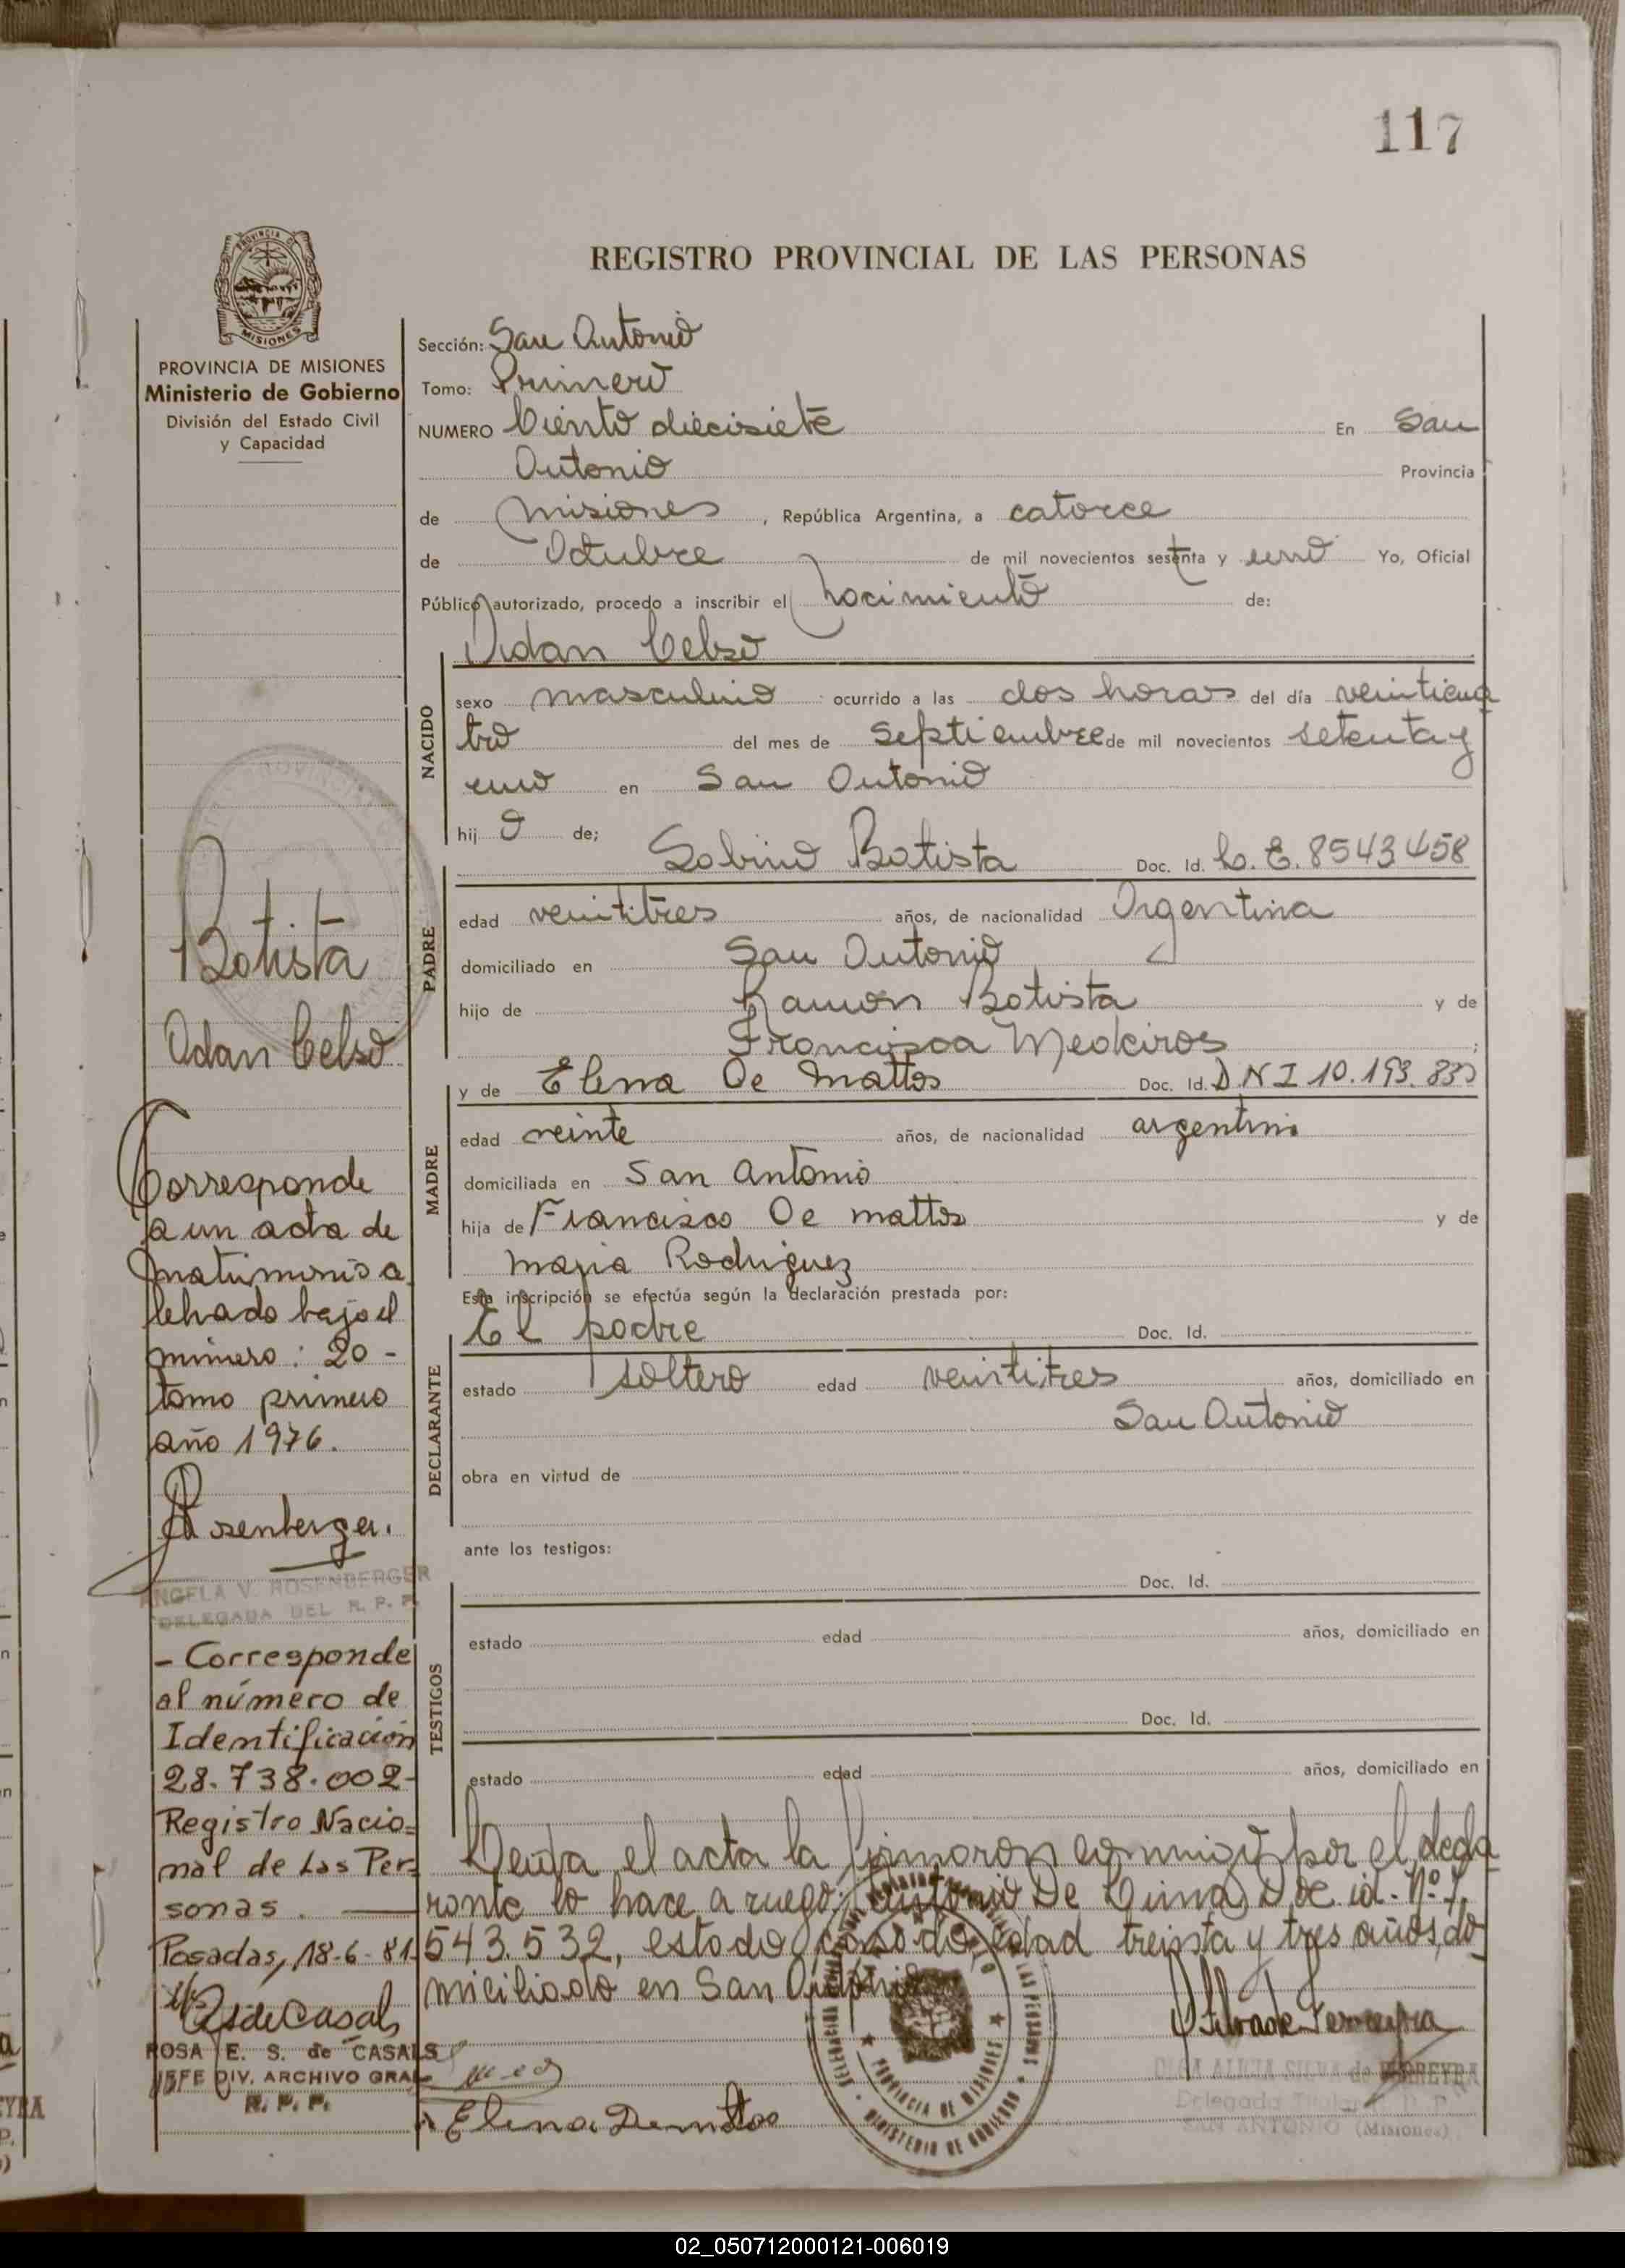 117
REGISTRO PROVINCIAL DE LAS PERSONAS
MISIONES
PROVINCIA DE MISIONES
Ministerio de Gobierno
División del Estado Civil
y Capacidad
Sección: San Antonio
Tomo: Primero
NUMERO Ciento diecisiete En San
Antonio Provincia
de Misiones, República Argentina, a catorce
de Octubre de mil novecientos setenta y uno Yo, Oficial
Público autorizado, procedo a inscribir el nacimiento de:
Adan Celso
NACIDO
sexo masculino ocurrido a las dos horas del día veinticua
tro del mes de Septiembre de mil novecientos setenta y
uno en San Antonio
hijo de;
Sabino Batista Doc. Id. L. E. 8543458
PADRE
edad veintitres años, de nacionalidad Argentina
domiciliado en San Antonio
hijo de Ramón Batista y de
Francisca Medeiros;
y de Elena De Mattos Doc. Id. D N I 10.193.83
MADRE
edad veinte años, de nacionalidad argentina
domiciliada en San Antonio
hija de Francisco De mattos y de
maria Rodriguez
Esta inscripción se efectúa según la declaración prestada por:
El padre Doc. Id.
DECLARANTE
estado soltero edad veintitres años, domiciliado en
San Antonio
obra en virtud de
ante los testigos:
Doc. Id.
TESTIGOS
estado edad años, domiciliado en
Doc. Id.
estado edad años, domiciliado en
Leida el acta la firmaron conmigo por el decla
rante lo hace a ruego: Antonio De Lima Doc. id. Nº 7.
543.532, estado casado edad treinta y tres años, do
miciliado en San Antonio
Elena Demattos
Batista
Adan Celso
Corresponde
a un acta de
matrimonio a
lebrado bajo el
número: 20 -
tomo primero
año 1976.
Rosenberger.
ANGELA V. ROSENBERGER
DELEGADA DEL R. P. P.
- Corresponde
al número de
Identificación
28.738.002-
Registro Nacio=
nal de Las Per=
sonas.
Posadas, 18-6-81
ROSA E. S. de CASALS
JEFE DIV. ARCHIVO GRAL
R. P. P.
PROVINCIA DE MISIONES
MINISTERIO DE GOBIERNO
OLGA ALICIA SILVA de FERREYRA
Delegada Titular R. P. P.
SAN ANTONIO (Misiones)
02_050712000121-006019